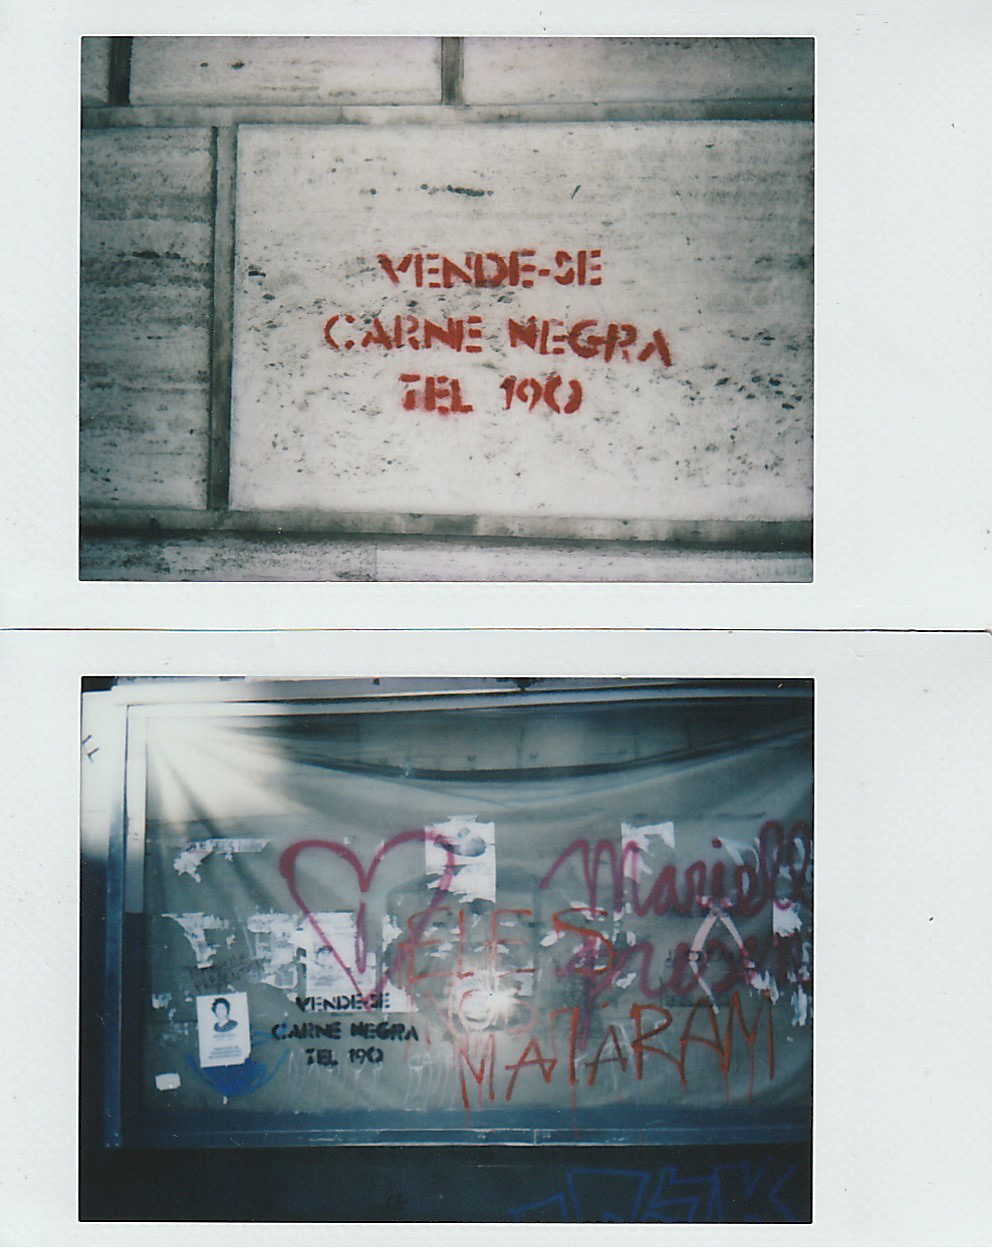 VENDE-SE
CARNE NEGRA
TEL 190
Marielle
presen
ELES
MATARAM
VENDE-SE
CARNE NEGRA
TEL 190